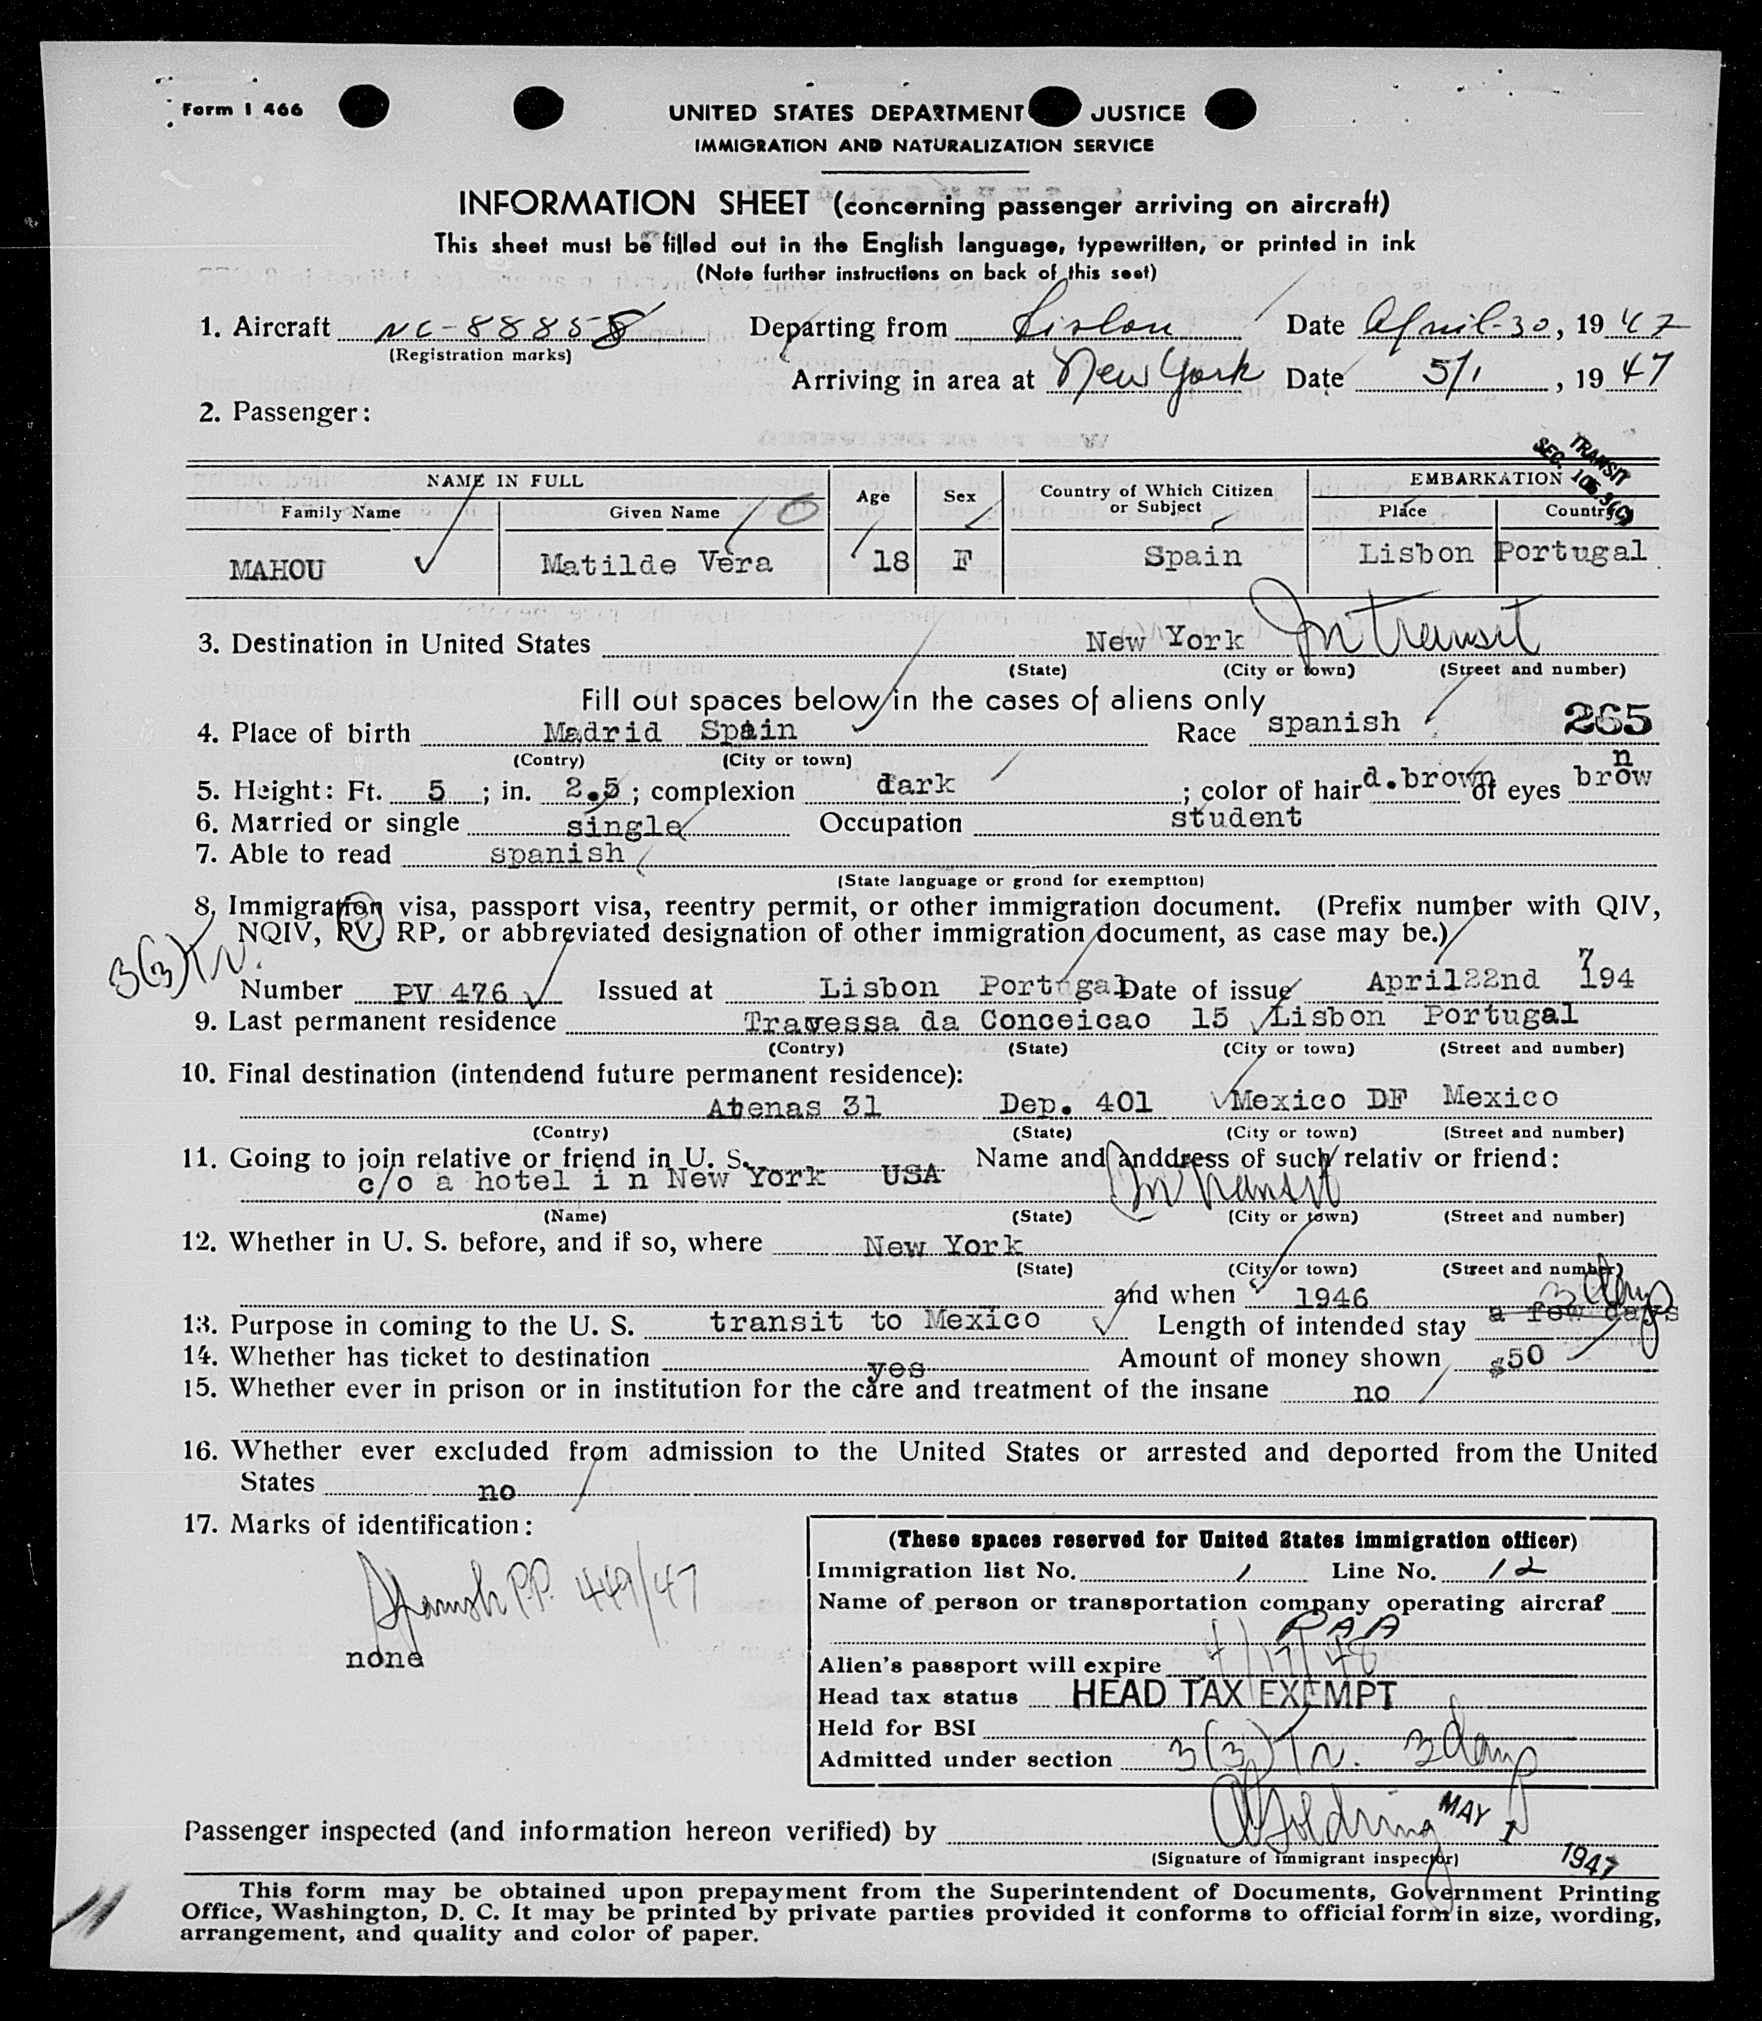 Form I 466
UNITED STATES DEPARTMENT JUSTICE
IMMIGRATION AND NATURALIZATION SERVICE
INFORMATION SHEET (concerning passenger arriving on aircraft)
This sheet must be filled out in the English language, typewritten, or printed in ink
(Note further instructions on back of this seet)
1. Aircraft NC-88858 Departing from Lisbon Date April-30, 1947
(Registration marks)
Arriving in area at New York Date 5/1, 1947
2. Passenger:
TRANSIT
SEC. 105.3(c)
NAME IN FULL Age Sex Country of Which Citizen or Subject EMBARKATION
Family Name Given Name Place Country
MAHOU Matilde Vera 18 F Spain Lisbon Portugal
3. Destination in United States New York In Transit
(State) (City or town) (Street and number)
Fill out spaces below in the cases of aliens only
4. Place of birth Madrid Spain Race spanish 265
(Contry) (City or town)
5. Height: Ft. 5; in. 2.5; complexion dark; color of hair d.brown of eyes brown
6. Married or single single Occupation student
7. Able to read spanish
(State language or grond for exemptton)
8. Immigration visa, passport visa, reentry permit, or other immigration document. (Prefix number with QIV,
NQIV, PV, RP, or abbreviated designation of other immigration document, as case may be.)
3(3)Tr.
Number PV 476 Issued at Lisbon Portugal Date of issue April22nd 1947
9. Last permanent residence Travessa da Conceicao 15 Lisbon Portugal
(Contry) (State) (City or town) (Street and number)
10. Final destination (intendend future permanent residence):
Atenas 31 Dep. 401 Mexico DF Mexico
(Contry) (State) (City or town) (Street and number)
11. Going to join relative or friend in U. S. Name and anddress of such relativ or friend:
c/o a hotel i n New York USA In Transit
(Name) (State) (City or town) (Street and number)
12. Whether in U. S. before, and if so, where New York
(State) (City or town) (Street and number)
and when 1946 3 days
13. Purpose in coming to the U. S. transit to Mexico Length of intended stay a few days
14. Whether has ticket to destination yes Amount of money shown $50
15. Whether ever in prison or in institution for the care and treatment of the insane no
16. Whether ever excluded from admission to the United States or arrested and deported from the United
States no
17. Marks of identification:
Spanish P.P. 449/47
none
(These spaces reserved for United States immigration officer)
Immigration list No. 1 Line No. 12
Name of person or transportation company operating aircraf
PAA
Alien's passport will expire 4/17/48
Head tax status HEAD TAX EXEMPT
Held for BSI
Admitted under section 3(3) Tr. 3 days
Passenger inspected (and information hereon verified) by Goldring MAY 1 1947
(Signature of immigrant inspector)
This form may be obtained upon prepayment from the Superintendent of Documents, Government Printing
Office, Washington, D. C. It may be printed by private parties provided it conforms to official form in size, wording,
arrangement, and quality and color of paper.